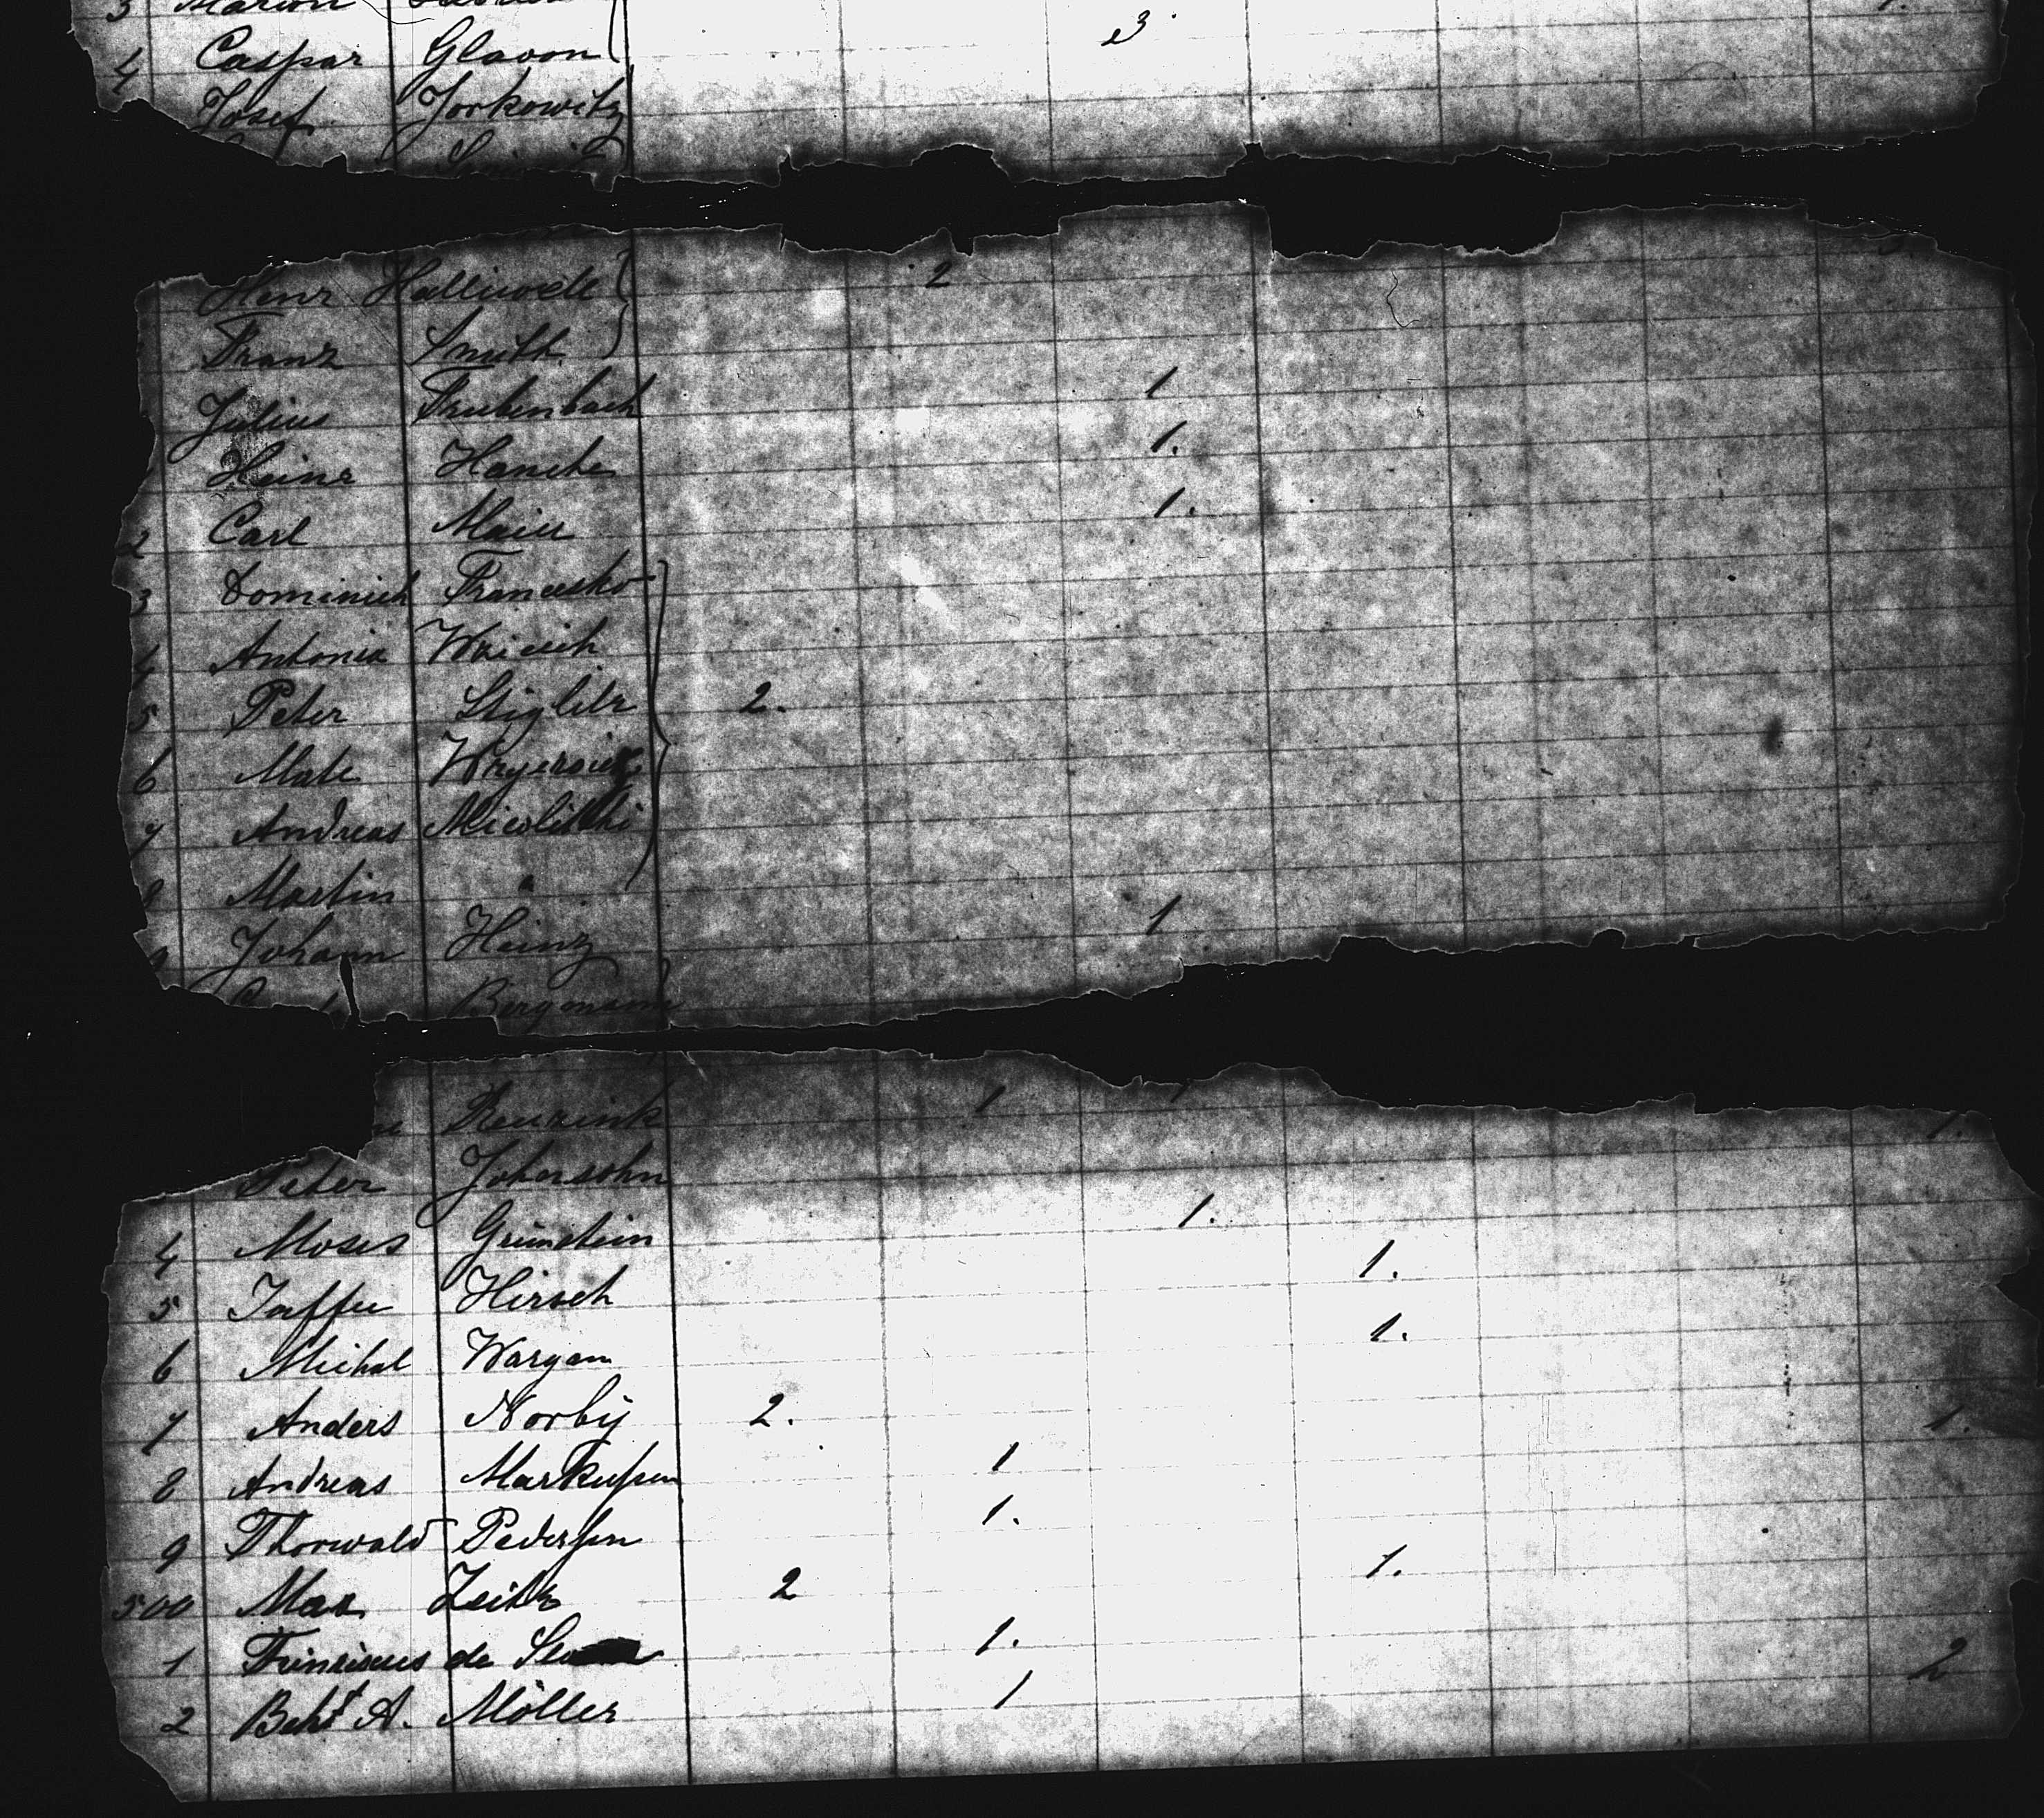 3 Marion
3.
4 Caspar Glavon
Josef Jorkowitz
Henr Halliwell 2
Franz Smith
Julius Trubenbach 1
Heinr Hanske 1.
2 Carl Maier 1.
3 Dominick Francisko
4 Antonia
5 Peter Stiglitz 2.
6 Mate
7 Andreas Nicolitchi
8 Martin "
9 Johann Heinz 1
Bergmson
Reurink 1 1
Peter Johersohn 1.
4 Moses Grünstein 1.
5 Jaffee Hirsch 1.
6 Michal Wargan 1.
7 Anders Norby 2.
8 Andreas Markussen 1 1.
9 Thorwald Pedersen 1.
500 Max Zeitz 2 1.
1 Franciscus de 1.
2 Beht A. Möller 1 2